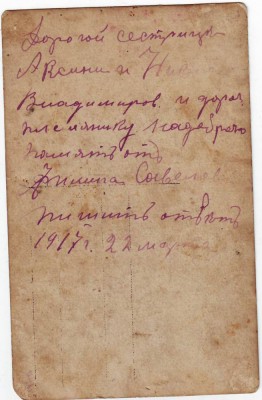 Дорогой сестрицѣ
Аксини и
Владимиров и дорог
племянику на добрую
памятъ отъ
Филипа Савель
пишитъ отвѣтъ
1917 г. 22 марта